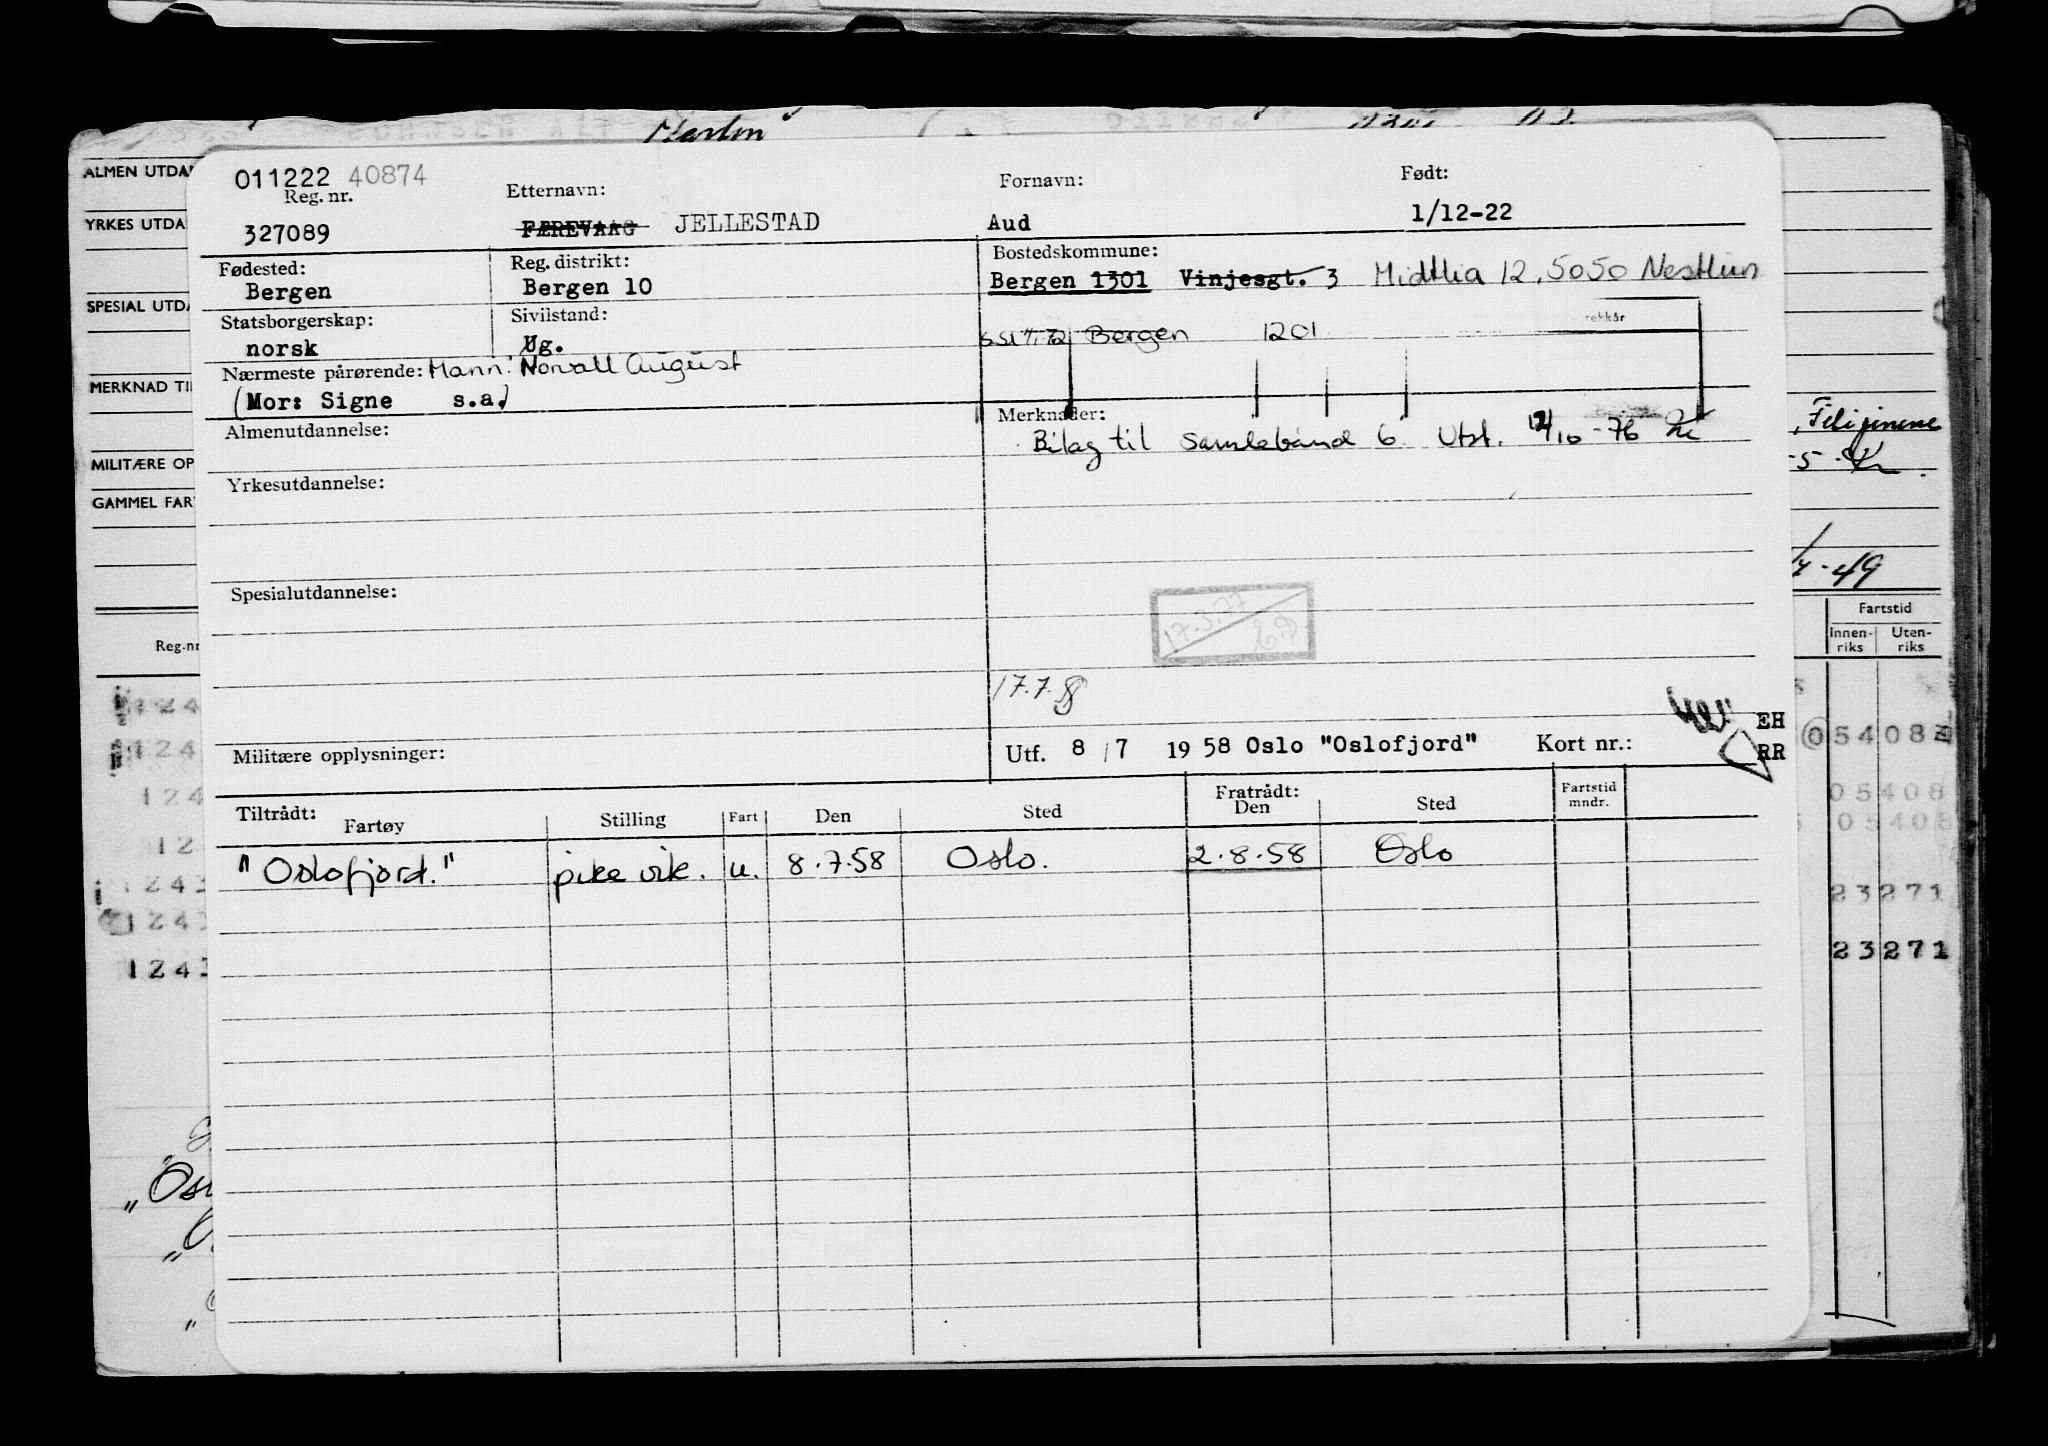 Marten
ALMEN UTDA
YRKES UTDA
SPESIAL UTDA
MERKNAD TI
MILITÆRE OP
GAMMEL FAR
Reg.nr
011222 40874
Reg. nr.
327089
Etternavn:
FÆREVAAG JELLESTAD
Fornavn:
Aud
Født:
1/12-22
Fødested:
Bergen
Reg. distrikt:
Bergen 10
Bostedskommune:
Bergen 1301 Vinjesgt. 3 Midtlia 12, 5050 Nesttun
Statsborgerskap:
norsk
Sivilstand:
Ug.
Bergen 1201
Nærmeste pårørende: Mann: Norvall August
(Mor: Signe s.a.)
Almenutdannelse:
Merknader:
Bilag til Samlebånd 6 Utst. /10-76
Yrkesutdannelse:
Spesialutdannelse:
17.3.77
17.7.
Militære opplysninger:
Utf. 8/7 1958 Oslo "Oslofjord" Kort nr.:
EH
RR
Tiltrådt:
Fartøy Stilling Fart Den Sted
Fratrådt:
Den Sted
Fartstid
mndr.
"Oslofjord." pike vik. u. 8.7.58 Oslo. 2.8.58 Oslo
-49
Fartstid
Innen-
riks
Uten-
riks
05408
05408
05408
23271
23271
1243
1243
1243